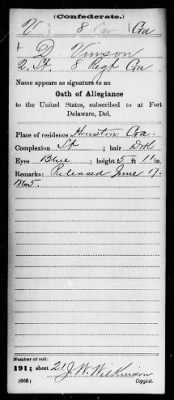 (Confederate.)
V 8 Cav Ga
D Vinson
2 Lt. 8 Regt Ga
Name appears as signature to an
Oath of Allegiance
to the United States, subscribed to at Fort
Delaware, Del.
Place of residence Houston Co Ga.
Complexion Lt; hair Drk
Eyes Blue; height 5 ft 11 in.
Remarks: Released June 17
Number of roll:
191; sheet 21 J. W. Wilkinson
(658) Copyist.